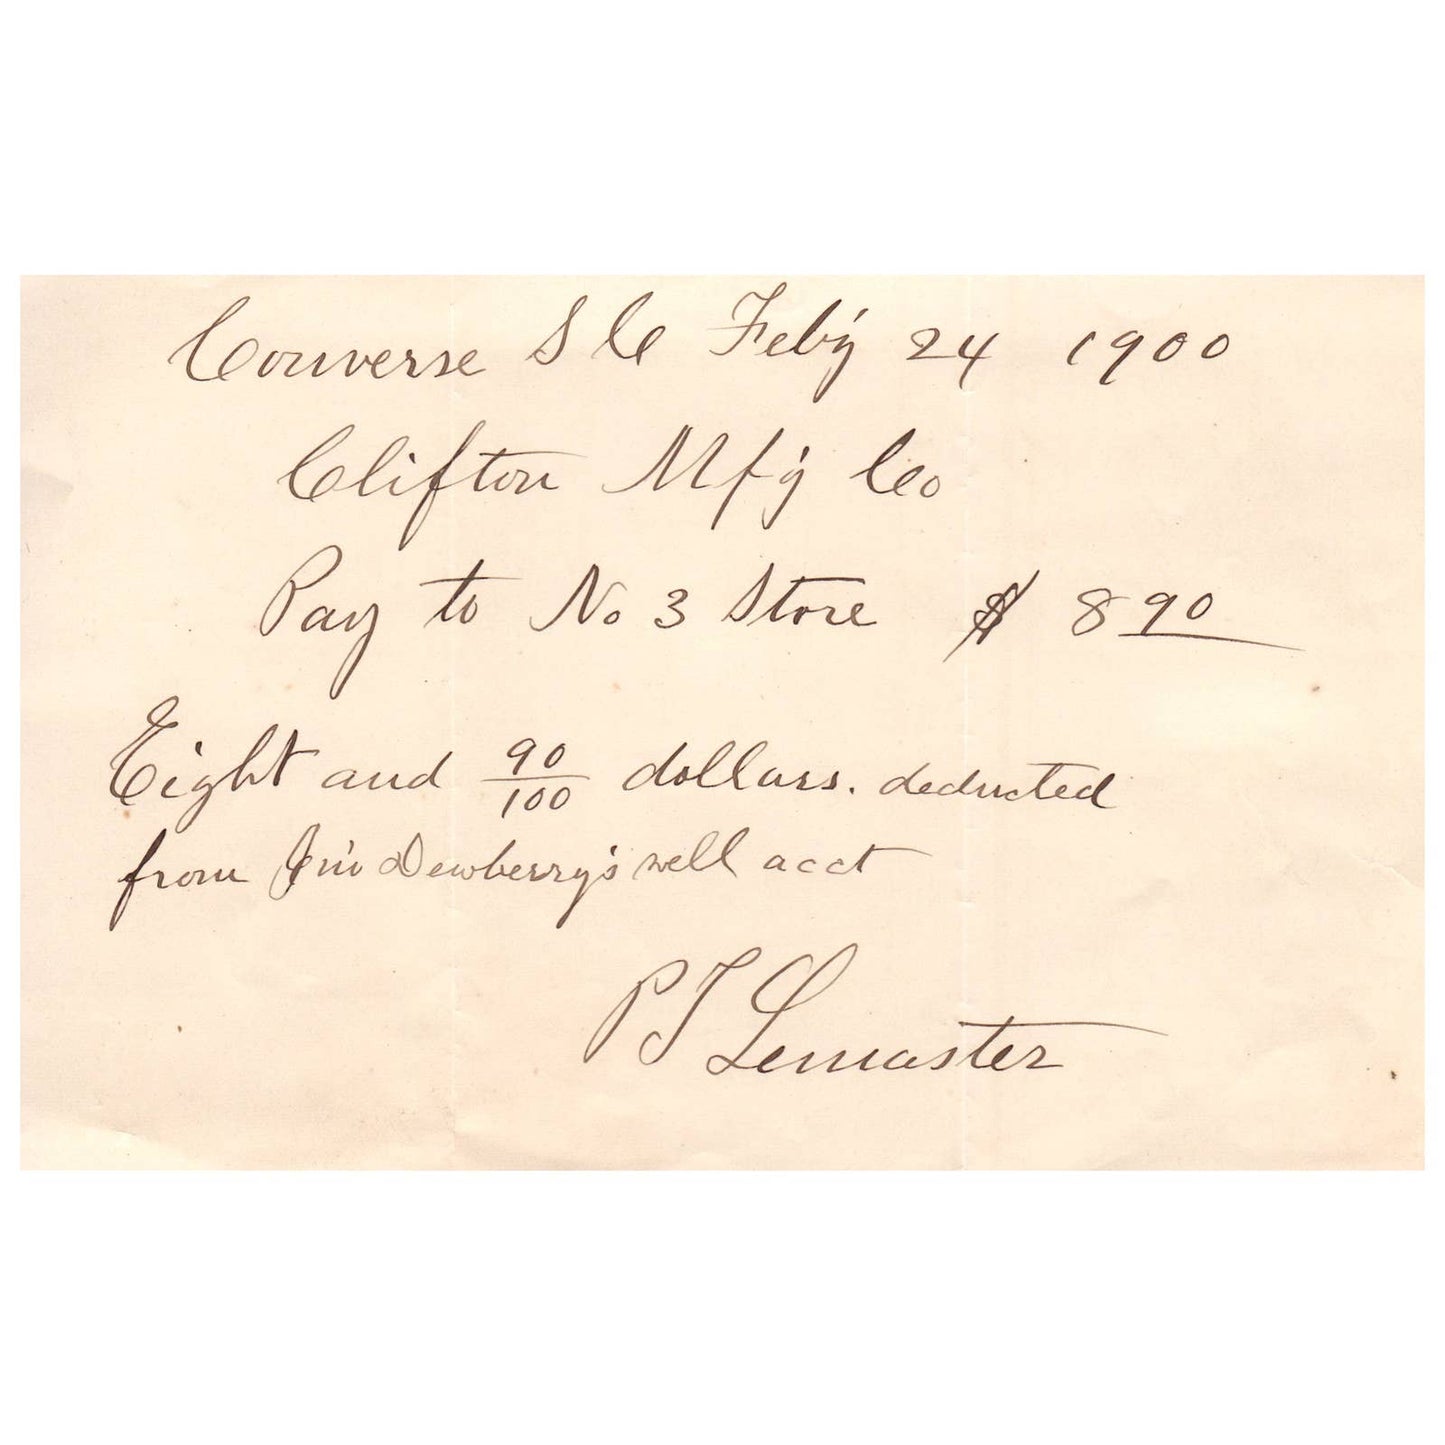 Converse S C Feb'y 24 1900
Clifton Mf'g Co
Pay to No 3 Store $ 8 90
Eight and 90/100 dollars. deducted
from Jim Dewberry's well acct
P J Lemaster